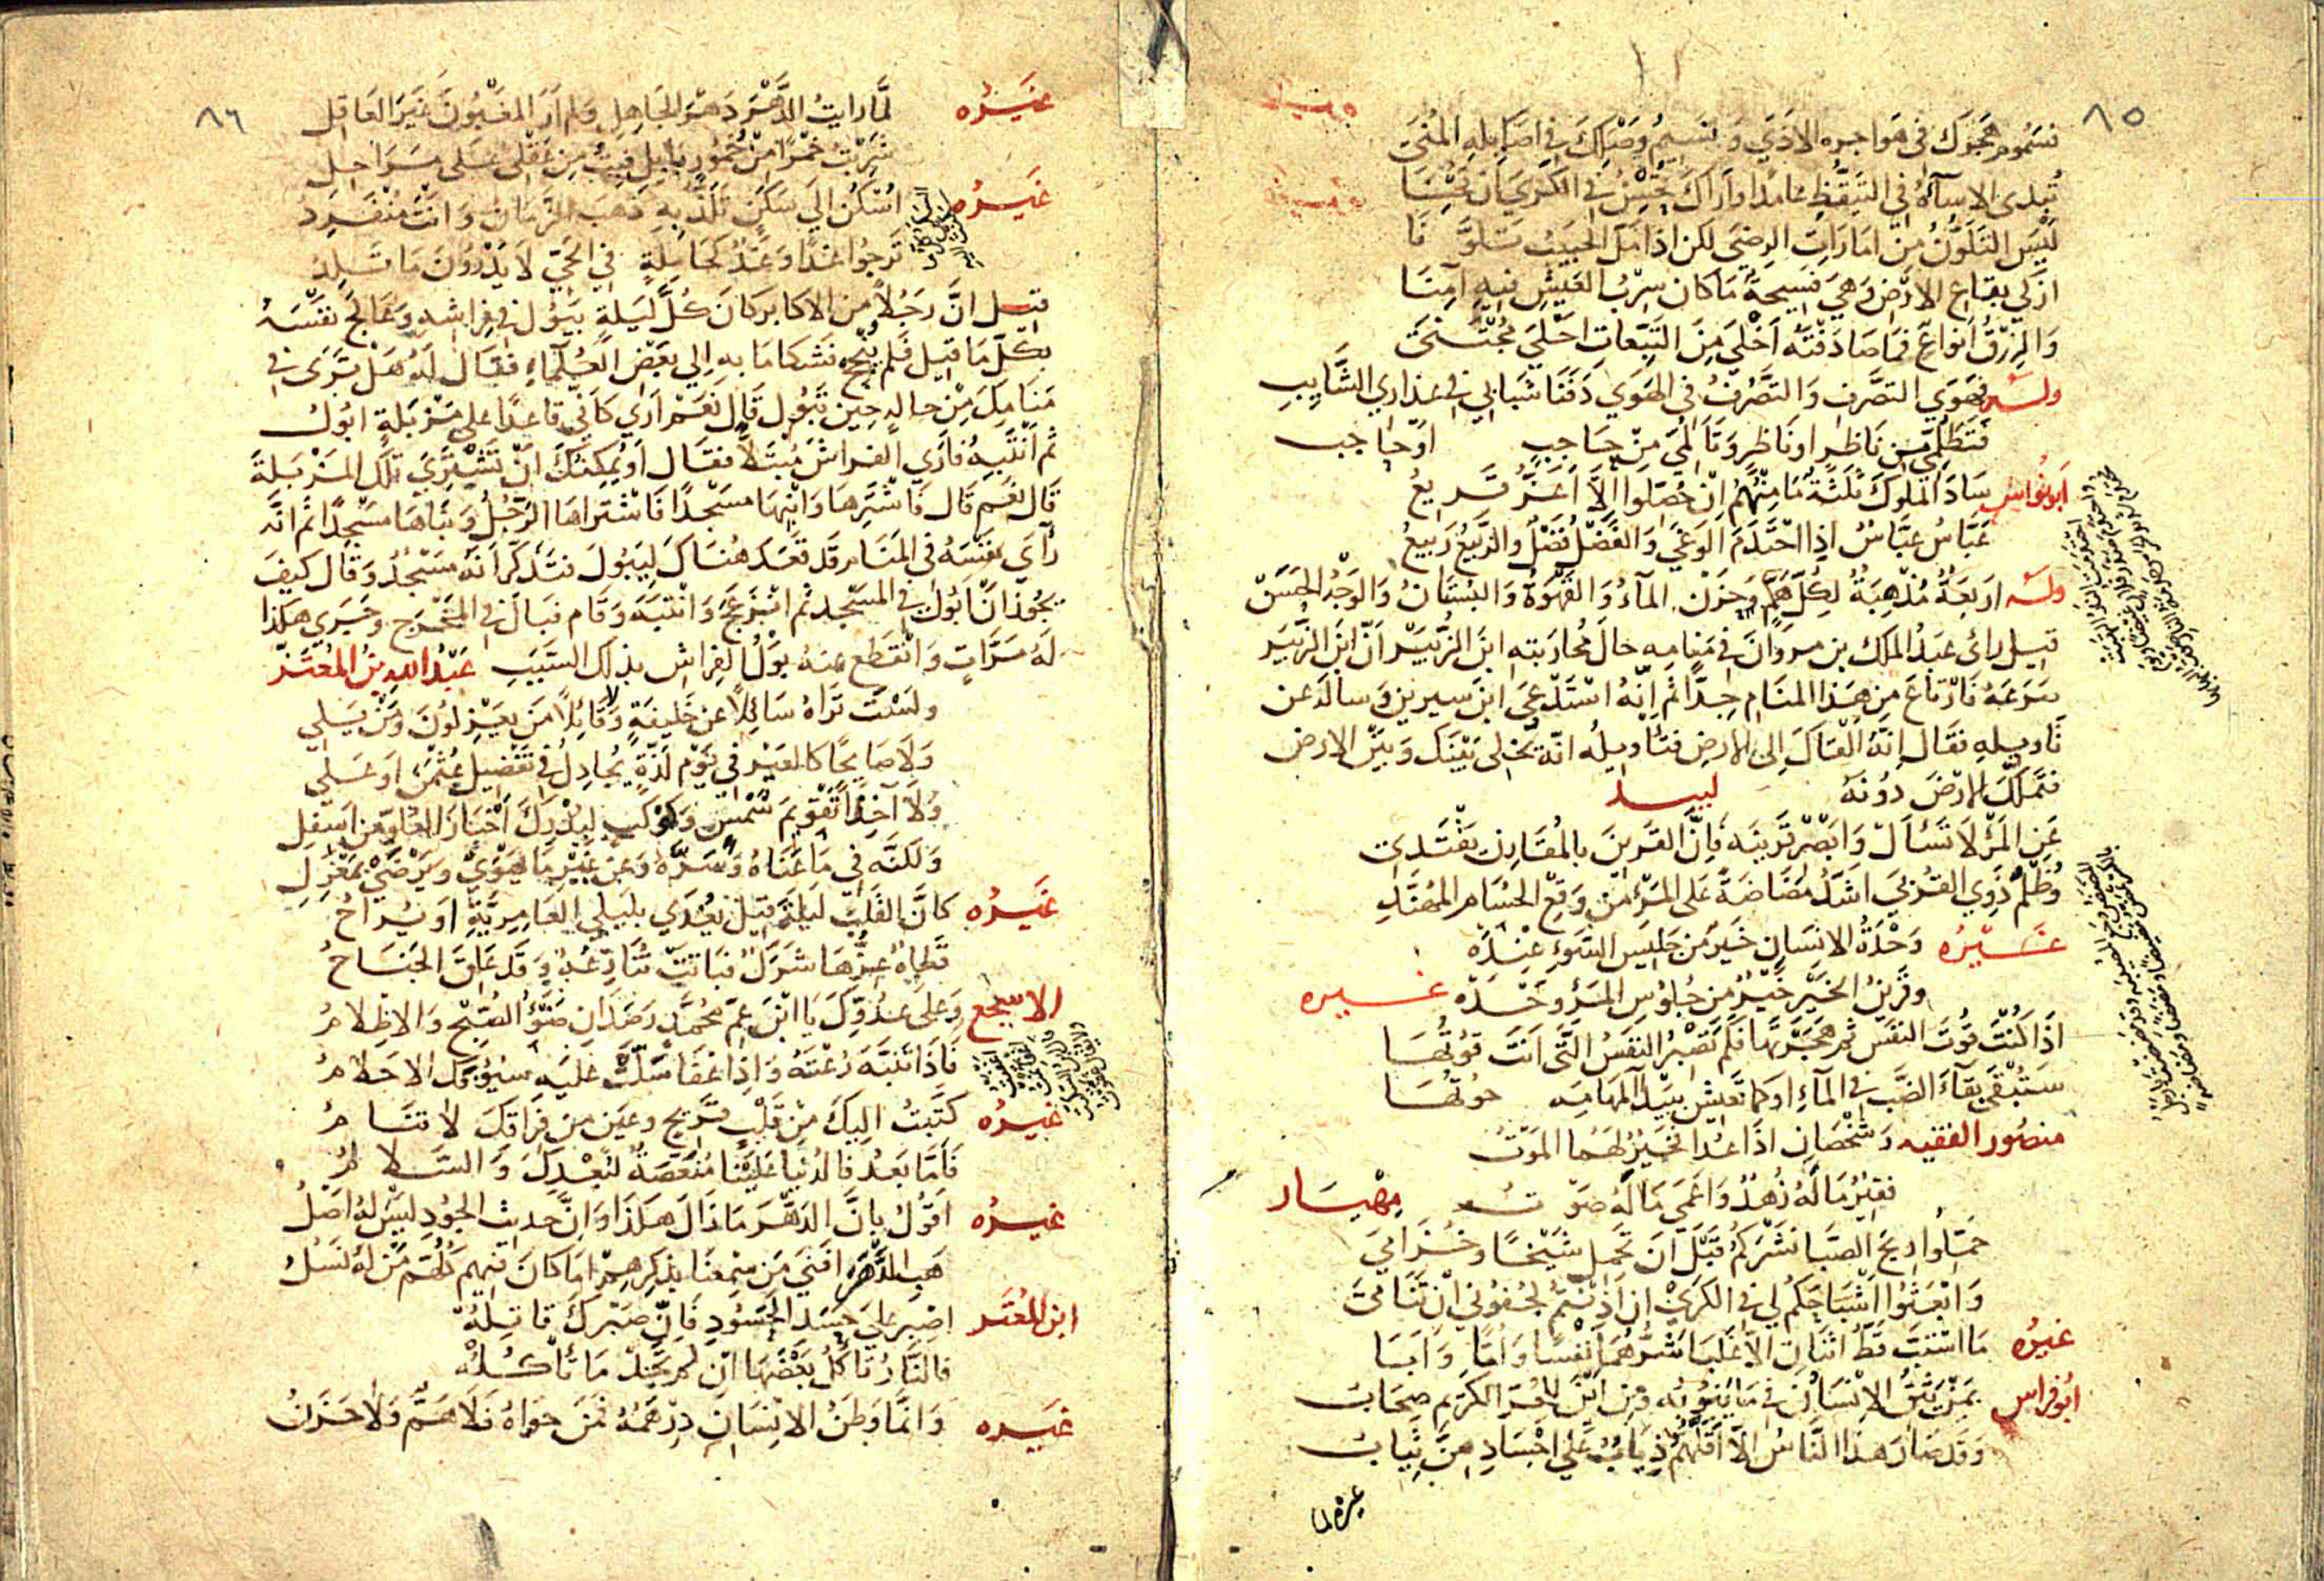 ٨٥
فسموم هجرك في هواجره الاذي ونسيم وصلك في اصايله المني
تبدي الاساءة في التيقظ عامدا واراك تحسن في الكري ان تحسنا
ليس التلون من امارات الرضي لكن اذا مل الحبيب تلونا
ازكي بقاع الارض وهي فسيحة ما كان سرب العيش فيه آمنا
والرزق انواع فما صادفته احلي من التبعات احلي مجتني
وله فهوي التصرف والتصرف في الهوي دفنا شبابي في عذاري الشايب
فتظلمي من ناظر او ناظر وتألمي من حاجب او حاجب
ابو نواس ساد الملوك ثلثة ما منهم ان حصلوا الا اعز قريع
عباس عباس اذا احتدم الوغي والفضل فضل والربيع ربيع
وله اربعة مذهبة لكل هم وحزن الماء والقهوة والبستان والوجه الحسن
قيل رائ عبد الملك بن مروان في منامه حال محاربته ابن الزبير ان ابن الزبير
صرعه فارتاع من هذا المنام جدا ثم انه استدعي ابن سيرين وساله عن
تاويله فقال انه القاك الي الارض فتاويله انه يخلي بينك وبين الارض
فتملك الارض دونه لبيد
عن المرء لا تسأل وابصر قرينه فان القرين بالمقارن يقتدي
وظلم ذوي القربي اشد مضاضة علي المرء من وقع الحسام المهند
غيره وحدة الانسان خير من جليس السوء عنده
وقرين الخير خير من جلوس المرء وحده غيره
اذا كنت قوت النفس ثم هجرتها فلم تصبر النفس التي انت قوتها
ستبقي بقاء الضب في الماء او كما تعيش ببيداء المهامه حوتها
منصور الفقيه وشخصان اذا عدا فخير لهما الموت
فقير ماله زهد واعمي ماله صوت مهيار
حملوا ريح الصبا نشركم قبل ان تحمل شيخا وخزامي
وابعثوا اشباحكم لي في الكري ان اذنتم لجفوني ان تناما
غيره ما استب قط اثنان الا غلبا شرهما نفسا واما وابا
ابو فراس بمن يثق الانسان في ما ينوبه ومن اين للحر الكريم صحاب
وقد صار هذا الناس الا اقلهم ذيابا علي اجسادهن ثياب
غيره لما
٨٦
غيره لما رايت الدهر دهر الجاهل ولم ار المغبون غير العاقل
شربت خمرا من خمور بابل فبت من عقلي علي مراحل
غيره اسكن الي سكن تلذ به ذهب الزمان وانت منفرد
ترجوا غدا وغد كحاملة في الحي لا يدرون ما تلد
قيل ان رجلا من الاكابر كان كل ليلة يبول في فراشه وعالج نفسه
بكل ما قيل فلم ينجح فشكا ما به الي بعض العلماء فقال له هل تري في
منامك من حاله حين تبول قال نعم اري كاني قاعدا علي مزبلة ابول
ثم انتبه فاري الفراش مبتلا فقال او يمكنك ان تشتري تلك المزبلة
قال نعم قال فاشترها وابنها مسجدا فاشتراها الرجل وبناها مسجدا ثم انه
رأي نفسه في المنام قد قعد هناك ليبول فتذكر انه مسجد وقال كيف
يجوز ان ابول في المسجد ثم انزعج وانتبه وقام فبال في المخرج وجري هكذا
له مرات وانقطع عنه بول الفراش بذلك السبب عبد الله بن المعتز
ولست تراه سائلا عن خليفة ولا قائلا من يعزلون ومن يلي
ولا صايحا كالعير في يوم لذة يجادل في تفضيل عثمن او علي
ولا آخذا تقويم شمس وكوكب ليدرك اخبار العلو من اسفل
ولكنه في ما عناه وسره وعن غير ما يهوي ويرضي بمعزل
غيره كان القلب ليلة قيل يغدي بليلي العامرية او يراح
قطاة عزها شرك فباتت تجاذبه وقد علق الجناح
الاشجع وعلي عدوك يا ابن عم محمد رصدان ضوء الصبح والاظلام
فاذا تنبه رعته واذا غفا سلت عليه سيوفك الاحلام
غيره كتبت اليك من قلب قريح وعين من فراقك لا تنام
فاما بعد فالدنيا علينا منغصة لبعدك والسلام
غيره اقول بان الدهر ما زال هكذا وان حديث الجود ليس له اصل
هب الدهر افني من سمعنا بذكرهم اما كان فيهم كلهم من له نسل
ابن المعتز اصبر علي حسد الحسود فان صبرك قاتله
فالنار تاكل بعضها ان لم تجد ما تأكله
غيره وانما وطن الانسان درهمه فمن حواه فلا هم ولا حزن